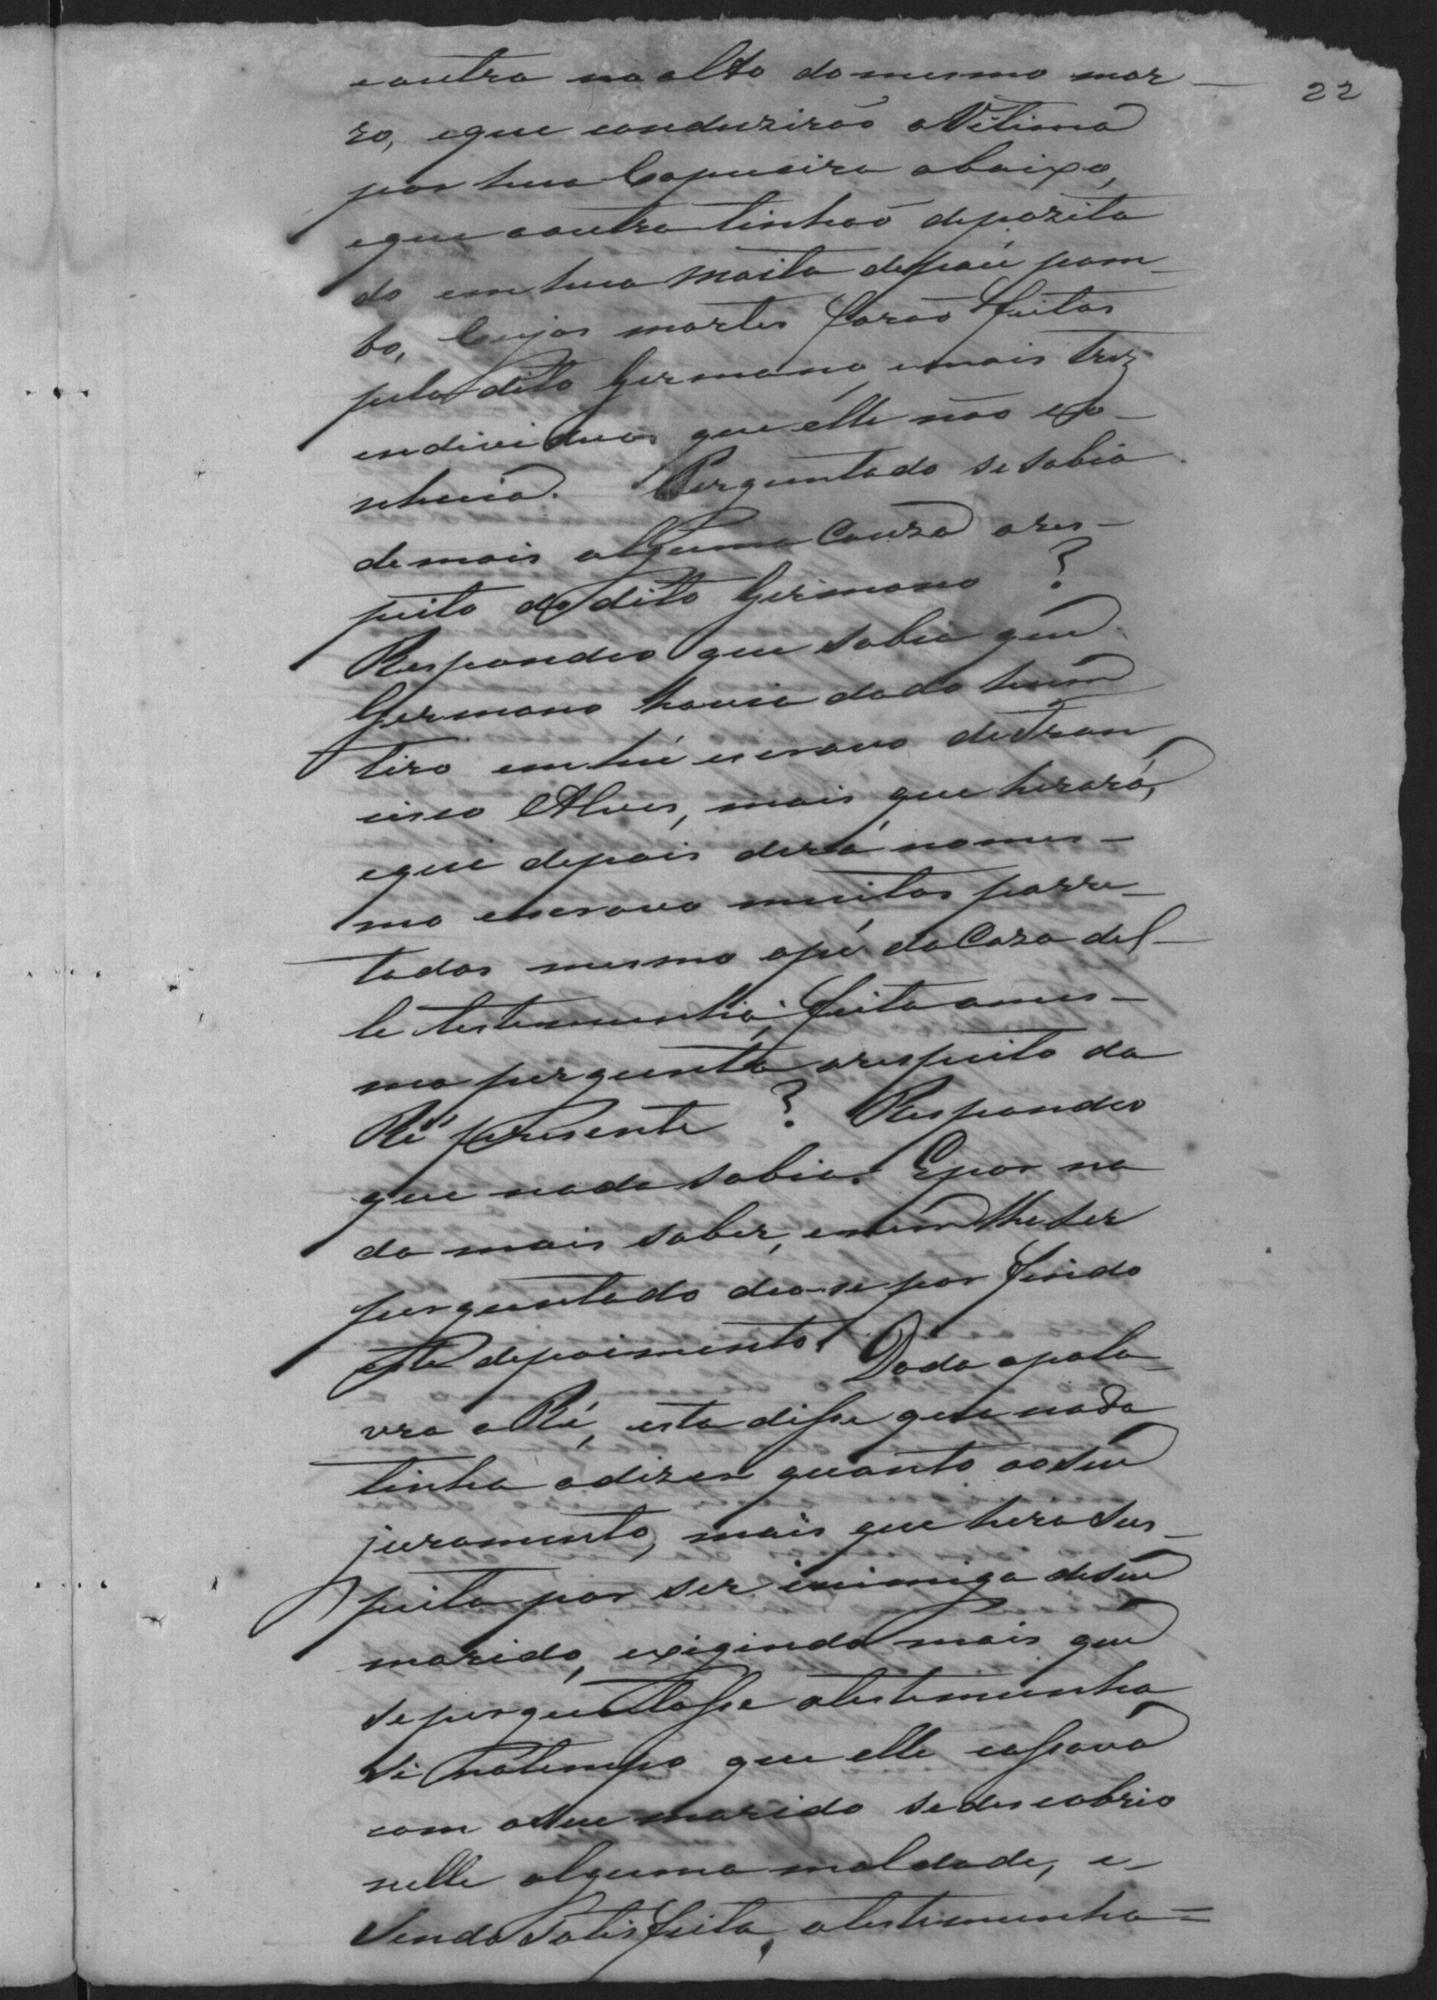 22
e outra no alto do mesmo mor-
ro, e que conduzirão a Vitima
por hua Capueira abaixo,
e que a outra tinhão depozita
do em hua Moita de páu pom-
bo, Cujas mortes forão feitas
pelo dito Germano e mais trez
endividuos que elle não co-
nhecia. Perguntado se sabia
de mais alguma Couza a res-
peito do dito Germano?
Respondeo que sabia que
Germano havia dado hum
tiro em hú escravo de Fran
cisco Alves, mais que herará,
e que depois derá no mes-
mo escravo muitas porre-
tadas mesmo a pé da Caza del-
le testemunha, feita a mes-
ma pergunta a respeito da
Ré prezente? Respondeo
que nada sabia. E por na
da mais saber, e nem lhe ser
perguntado deo-se por findo
este depoimento. Dada a pala-
vra a Ré, esta disse que nada
tinha a dizer quanto ao seu
juramento, mais que hera sus-
peita por ser inimiga de seu
marido, exigindo mais que
se perguntasse a testemunha
si no tempo que elle cassava
com o seu marido se descobrio
nelle alguma maldade, e-
sendo satisfeita, a testemunha=